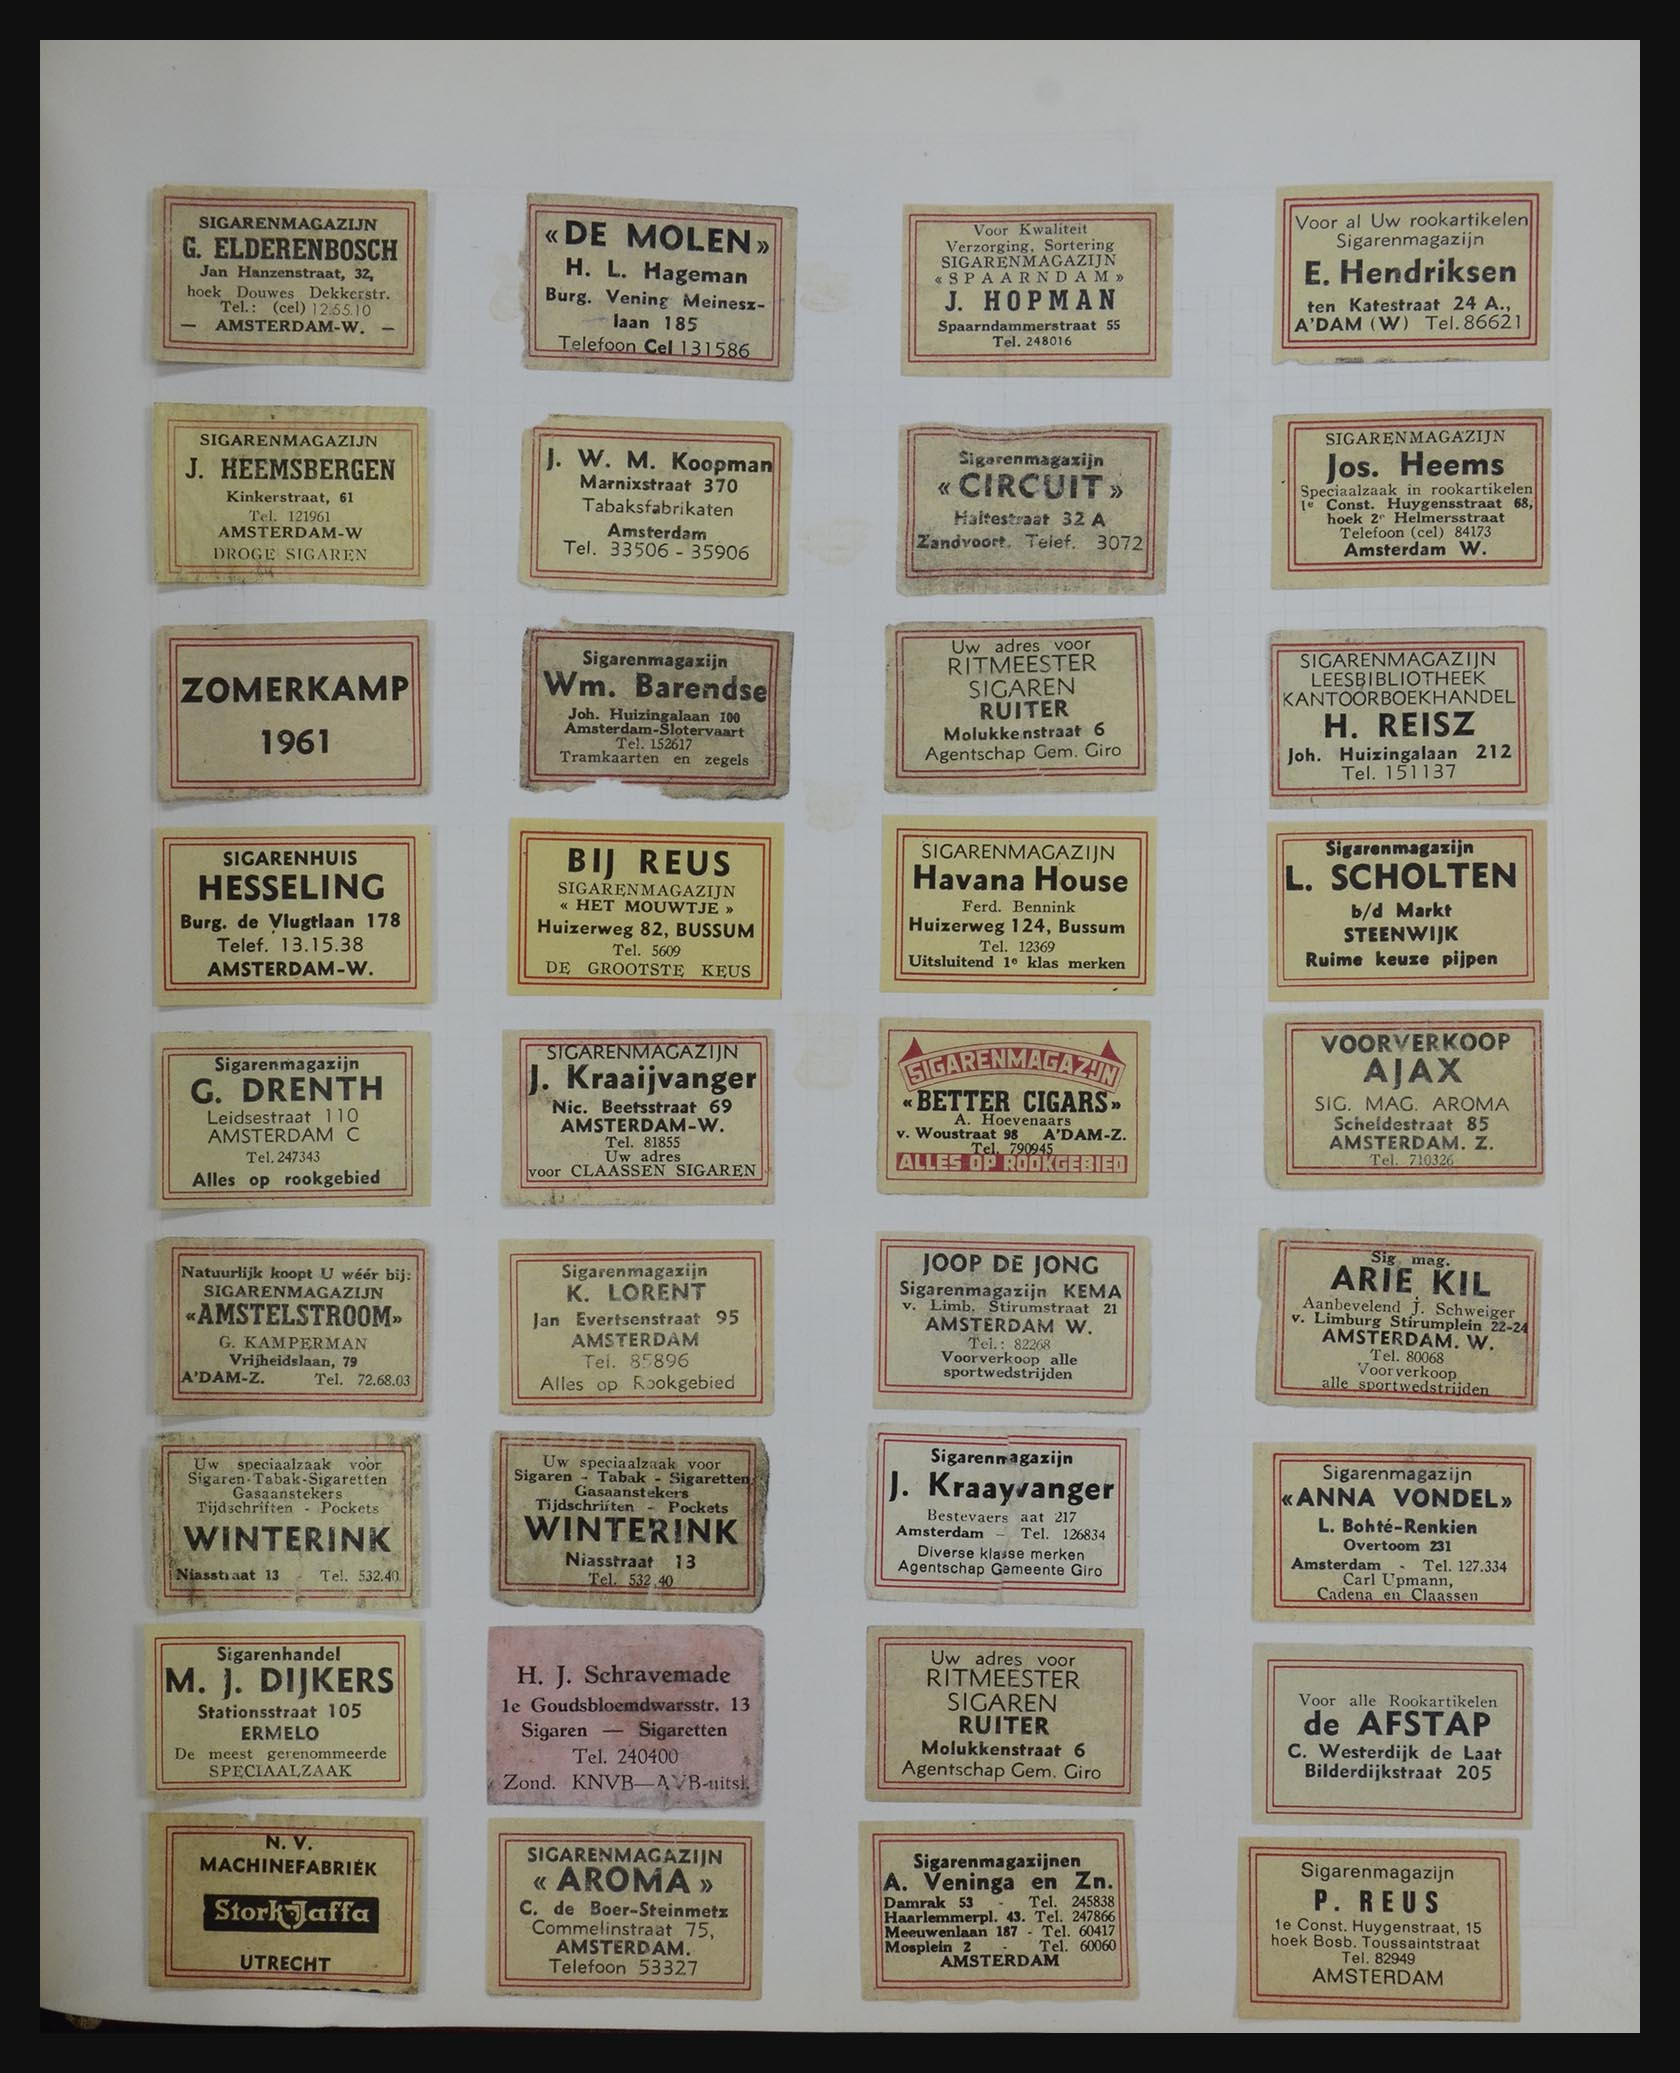 SIGARENMAGAZIJN
G. ELDERENBOSCH
Jan Hanzenstraat, 32,
hoek Douwes Dekkerstr.
Tel.: (cel) 12.55.10
— AMSTERDAM-W. —
« DE MOLEN »
H. L. Hageman
Burg. Vening Meinesz-
laan 185
Telefoon Cel 131586
Voor Kwaliteit
Verzorging, Sortering
SIGARENMAGAZIJN
« SPAARNDAM »
J. HOPMAN
Spaarndammerstraat 55
Tel. 248016
Voor al Uw rookartikelen
Sigarenmagazijn
E. Hendriksen
ten Katestraat 24 A.,
A'DAM (W) Tel. 86621
SIGARENMAGAZIJN
J. HEEMSBERGEN
Kinkerstraat, 61
Tel. 121961
AMSTERDAM-W
DROGE SIGAREN
J. W. M. Koopman
Marnixstraat 370
Tabaksfabrikaten
Amsterdam
Tel. 33506 - 35906
Sigarenmagazijn
« CIRCUIT »
Haltestraat 32 A
Zandvoort. Telef. 3072
SIGARENMAGAZIJN
Jos. Heems
Speciaalzaak in rookartikelen
1e Const. Huygensstraat 68,
hoek 2e Helmersstraat
Telefoon (cel) 84173
Amsterdam W.
ZOMERKAMP
1961
Sigarenmagazijn
Wm. Barendse
Joh. Huizingalaan 100
Amsterdam-Slotervaart
Tel. 152617
Tramkaarten en zegels
Uw adres voor
RITMEESTER
SIGAREN
RUITER
Molukkenstraat 6
Agentschap Gem. Giro
SIGARENMAGAZIJN
LEESBIBLIOTHEEK
KANTOORBOEKHANDEL
H. REISZ
Joh. Huizingalaan 212
Tel. 151137
SIGARENHUIS
HESSELING
Burg. de Vlugtlaan 178
Telef. 13.15.38
AMSTERDAM-W.
BIJ REUS
SIGARENMAGAZIJN
« HET MOUWTJE »
Huizerweg 82, BUSSUM
Tel. 5609
DE GROOTSTE KEUS
SIGARENMAGAZIJN
Havana House
Ferd. Bennink
Huizerweg 124, Bussum
Tel. 12369
Uitsluitend 1e klas merken
Sigarenmagazijn
L. SCHOLTEN
b/d Markt
STEENWIJK
Ruime keuze pijpen
Sigarenmagazijn
G. DRENTH
Leidsestraat 110
AMSTERDAM C
Tel. 247343
Alles op rookgebied
SIGARENMAGAZIJN
J. Kraaijvanger
Nic. Beetsstraat 69
AMSTERDAM-W.
Tel. 81855
Uw adres
voor CLAASSEN SIGAREN
SIGARENMAGAZIJN
« BETTER CIGARS »
A. Hoevenaars
v. Woustraat 98 A'DAM-Z.
Tel. 790945
ALLES OP ROOKGEBIED
VOORVERKOOP
AJAX
SIG. MAG. AROMA
Scheldestraat 85
AMSTERDAM. Z.
Tel. 710326
Natuurlijk koopt U wéér bij:
SIGARENMAGAZIJN
«AMSTELSTROOM»
G. KAMPERMAN
Vrijheidslaan, 79
A'DAM-Z. Tel. 72.68.03
Sigarenmagazijn
K. LORENT
Jan Evertsenstraat 95
AMSTERDAM
Tel. 85896
Alles op Rookgebied
JOOP DE JONG
Sigarenmagazijn KEMA
v. Limb. Stirumstraat 21
AMSTERDAM W.
Tel.: 82268
Voorverkoop alle
sportwedstrijden
Sig. mag.
ARIE KIL
Aanbevelend J. Schweiger
v. Limburg Stirumplein 22-24
AMSTERDAM. W.
Tel. 80068
Voorverkoop
alle sportwedstrijden
Uw speciaalzaak voor
Sigaren-Tabak-Sigaretten
Gasaanstekers
Tijdschriften - Pockets
WINTERINK
Niasstraat 13 - Tel. 532.40
Uw speciaalzaak voor
Sigaren - Tabak - Sigaretten
Gasaanstekers
Tijdschriften - Pockets
WINTERINK
Niasstraat 13
Tel. 532.40
Sigarenmagazijn
J. Kraayvanger
Bestevaers aat 217
Amsterdam — Tel. 126834
Diverse klasse merken
Agentschap Gemeente Giro
Sigarenmagazijn
«ANNA VONDEL»
L. Bohté-Renkien
Overtoom 231
Amsterdam - Tel. 127.334
Carl Upmann,
Cadena en Claassen
Sigarenhandel
M. J. DIJKERS
Stationsstraat 105
ERMELO
De meest gerenommeerde
SPECIAALZAAK
H. J. Schravemade
1e Goudsbloemdwarsstr. 13
Sigaren — Sigaretten
Tel. 240400
Zond. KNVB—AVB-uitsl.
Uw adres voor
RITMEESTER
SIGAREN
RUITER
Molukkenstraat 6
Agentschap Gem. Giro
Voor alle Rookartikelen
de AFSTAP
C. Westerdijk de Laat
Bilderdijkstraat 205
N. V.
MACHINEFABRIEK
Stork-Jaffa
UTRECHT
SIGARENMAGAZIJN
« AROMA »
C. de Boer-Steinmetz
Commelinstraat 75,
AMSTERDAM.
Telefoon 53327
Sigarenmagazijnen
A. Veninga en Zn.
Damrak 53 - Tel. 245838
Haarlemmerpl. 43. Tel. 247866
Meeuwenlaan 187 - Tel. 60417
Mosplein 2 - Tel. 60060
AMSTERDAM
Sigarenmagazijn
P. REUS
1e Const. Huygenstraat, 15
hoek Bosb. Toussaintstraat
Tel. 82949
AMSTERDAM